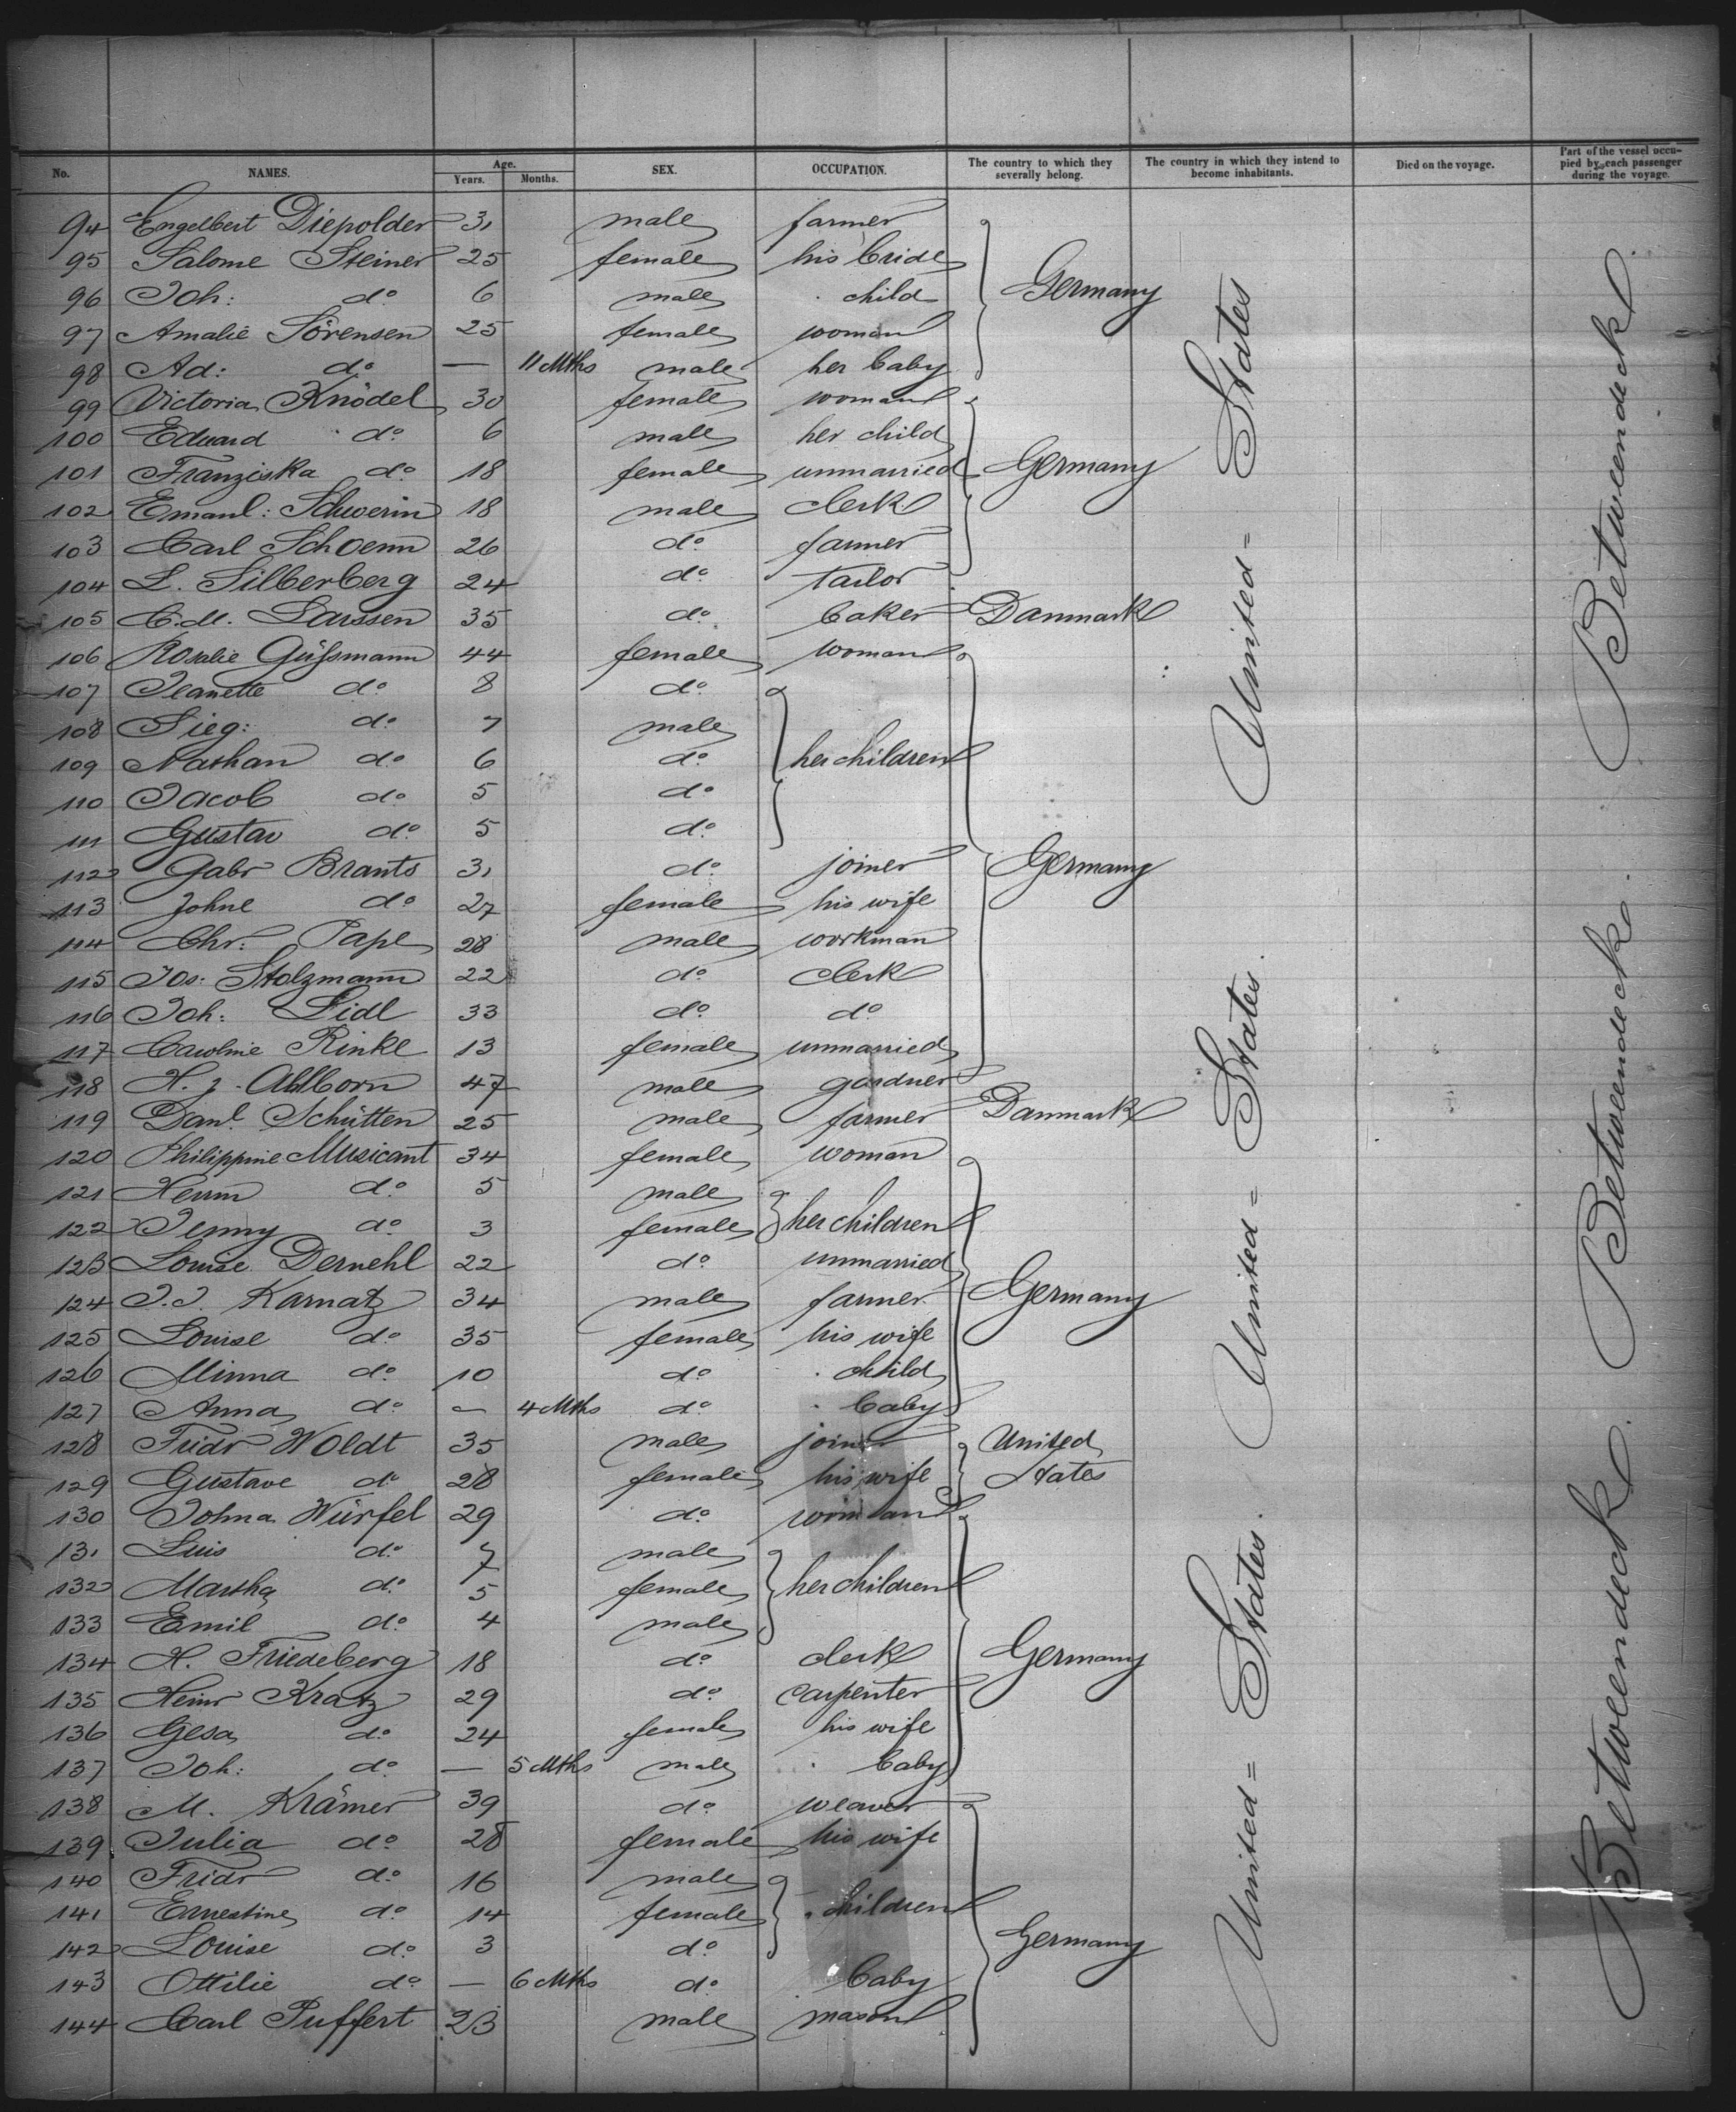 No. NAMES. Age. Years. Months. SEX. OCCUPATION. The country to which they severally belong. The country in which they intend to become inhabitants. Died on the voyage. Part of the vessel occupied by each passenger during the voyage.
94 Engelbert Diepolder 31 male farmer
95 Salome Steiner 25 female his bride
96 Joh: do 6 male " child Germany
97 Amalie Sörensen 25 female woman
98 Ad: do — 11 Mths male her baby
99 Victoria Knödel 30 female woman
100 Eduard do 6 male her child
101 Franziska do 18 female unmarried Germany
102 Emanl: Schwerin 18 male clerk
103 Carl Schoenn 26 do farmer
104 L. Silberberg 24 do tailor
105 C. M. Larssen 35 do baker Danmark
106 Rosalie Güssmann 44 female woman
107 Jeanette do 8 do
108 Sieg: do 7 male
109 Nathan do 6 do her children
110 Jacob do 5 do
111 Gustav do 5 do
112 Gabr Brants 31 do joiner Germany
113 Johne do 27 female his wife
114 Chr: Pape 28 male workman
115 Jos: Stolzmann 22 do clerk
116 Joh: Lidl 33 do do
117 Caroline Rinke 13 female unmarried
118 H. J. Ahlborn 47 male gardner
119 Danl. Schütten 25 male farmer Danmark
120 Philippine Musicant 34 female woman
121 Herm do 5 male
122 Jenny do 3 female her children
123 Louise Dernehl 22 do unmarried
124 J. J. Karnatz 34 male farmer Germany
125 Louise do 35 female his wife
126 Minna do 10 do " child
127 Anna do — 4 Mths do " baby
128 Fridr Woldt 35 male joiner United
129 Gustave do 28 female his wife States
130 Johna Würfel 29 do woman
131 Luis do 7 male
132 Martha do 5 female her children
133 Emil do 4 male
134 H. Friedeberg 18 do clerk Germany
135 Heinr Kratz 29 do carpenter
136 Gesa do 24 female his wife
137 Joh: do — 5 Mths male " baby
138 M. Krämer 39 do weaver
139 Julia do 28 female his wife
140 Fridr do 16 male
141 Ernestine do 14 female " children
142 Louise do 3 do Germany
143 Ottilie do — 6 Mths do " baby
144 Carl Puffert 23 male mason
United = States
United = States.
United = States.
Betweendeck.
Betweendeck.
Betweendeck.